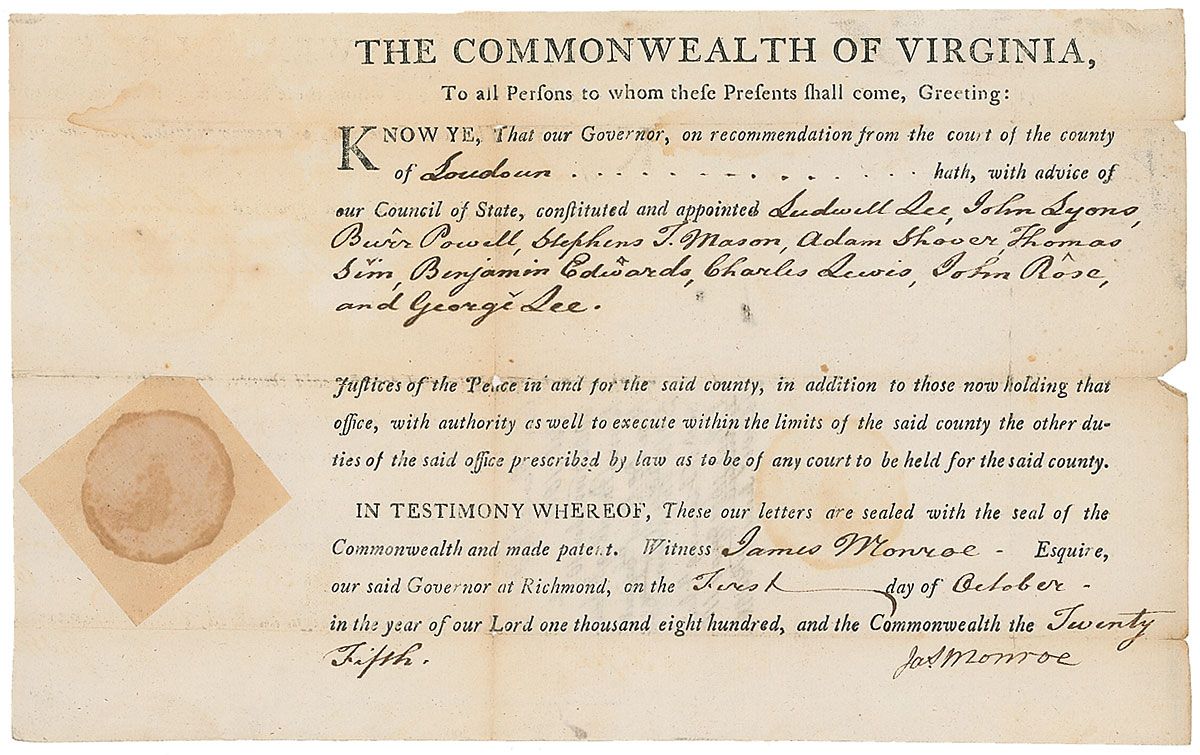 THE COMMONWEALTH OF VIRGINIA,
To all Perſons to whom theſe Preſents ſhall come, Greeting:
KNOW YE, That our Governor, on recommendation from the court of the county
of Loudoun . . . . . . . . . . . . . . . hath, with advice of
our Council of State, conſtituted and appointed Ludwell Lee, John Lyons,
Burr Powell, Stephens T. Mason, Adam Shover, Thomas
Sim, Benjamin Edwards, Charles Lewis, John Rose,
and George Lee.
Juſtices of the Peace in and for the said county, in addition to those now holding that
office, with authority as well to execute within the limits of the said county the other du-
ties of the said office prescribed by law as to be of any court to be held for the said county.
IN TESTIMONY WHEREOF, These our letters are sealed with the seal of the
Commonwealth and made patent. Witness James Monroe - Esquire,
our said Governor at Richmond, on the First day of October -
in the year of our Lord one thousand eight hundred, and the Commonwealth the Twenty
Fifth. Jas Monroe